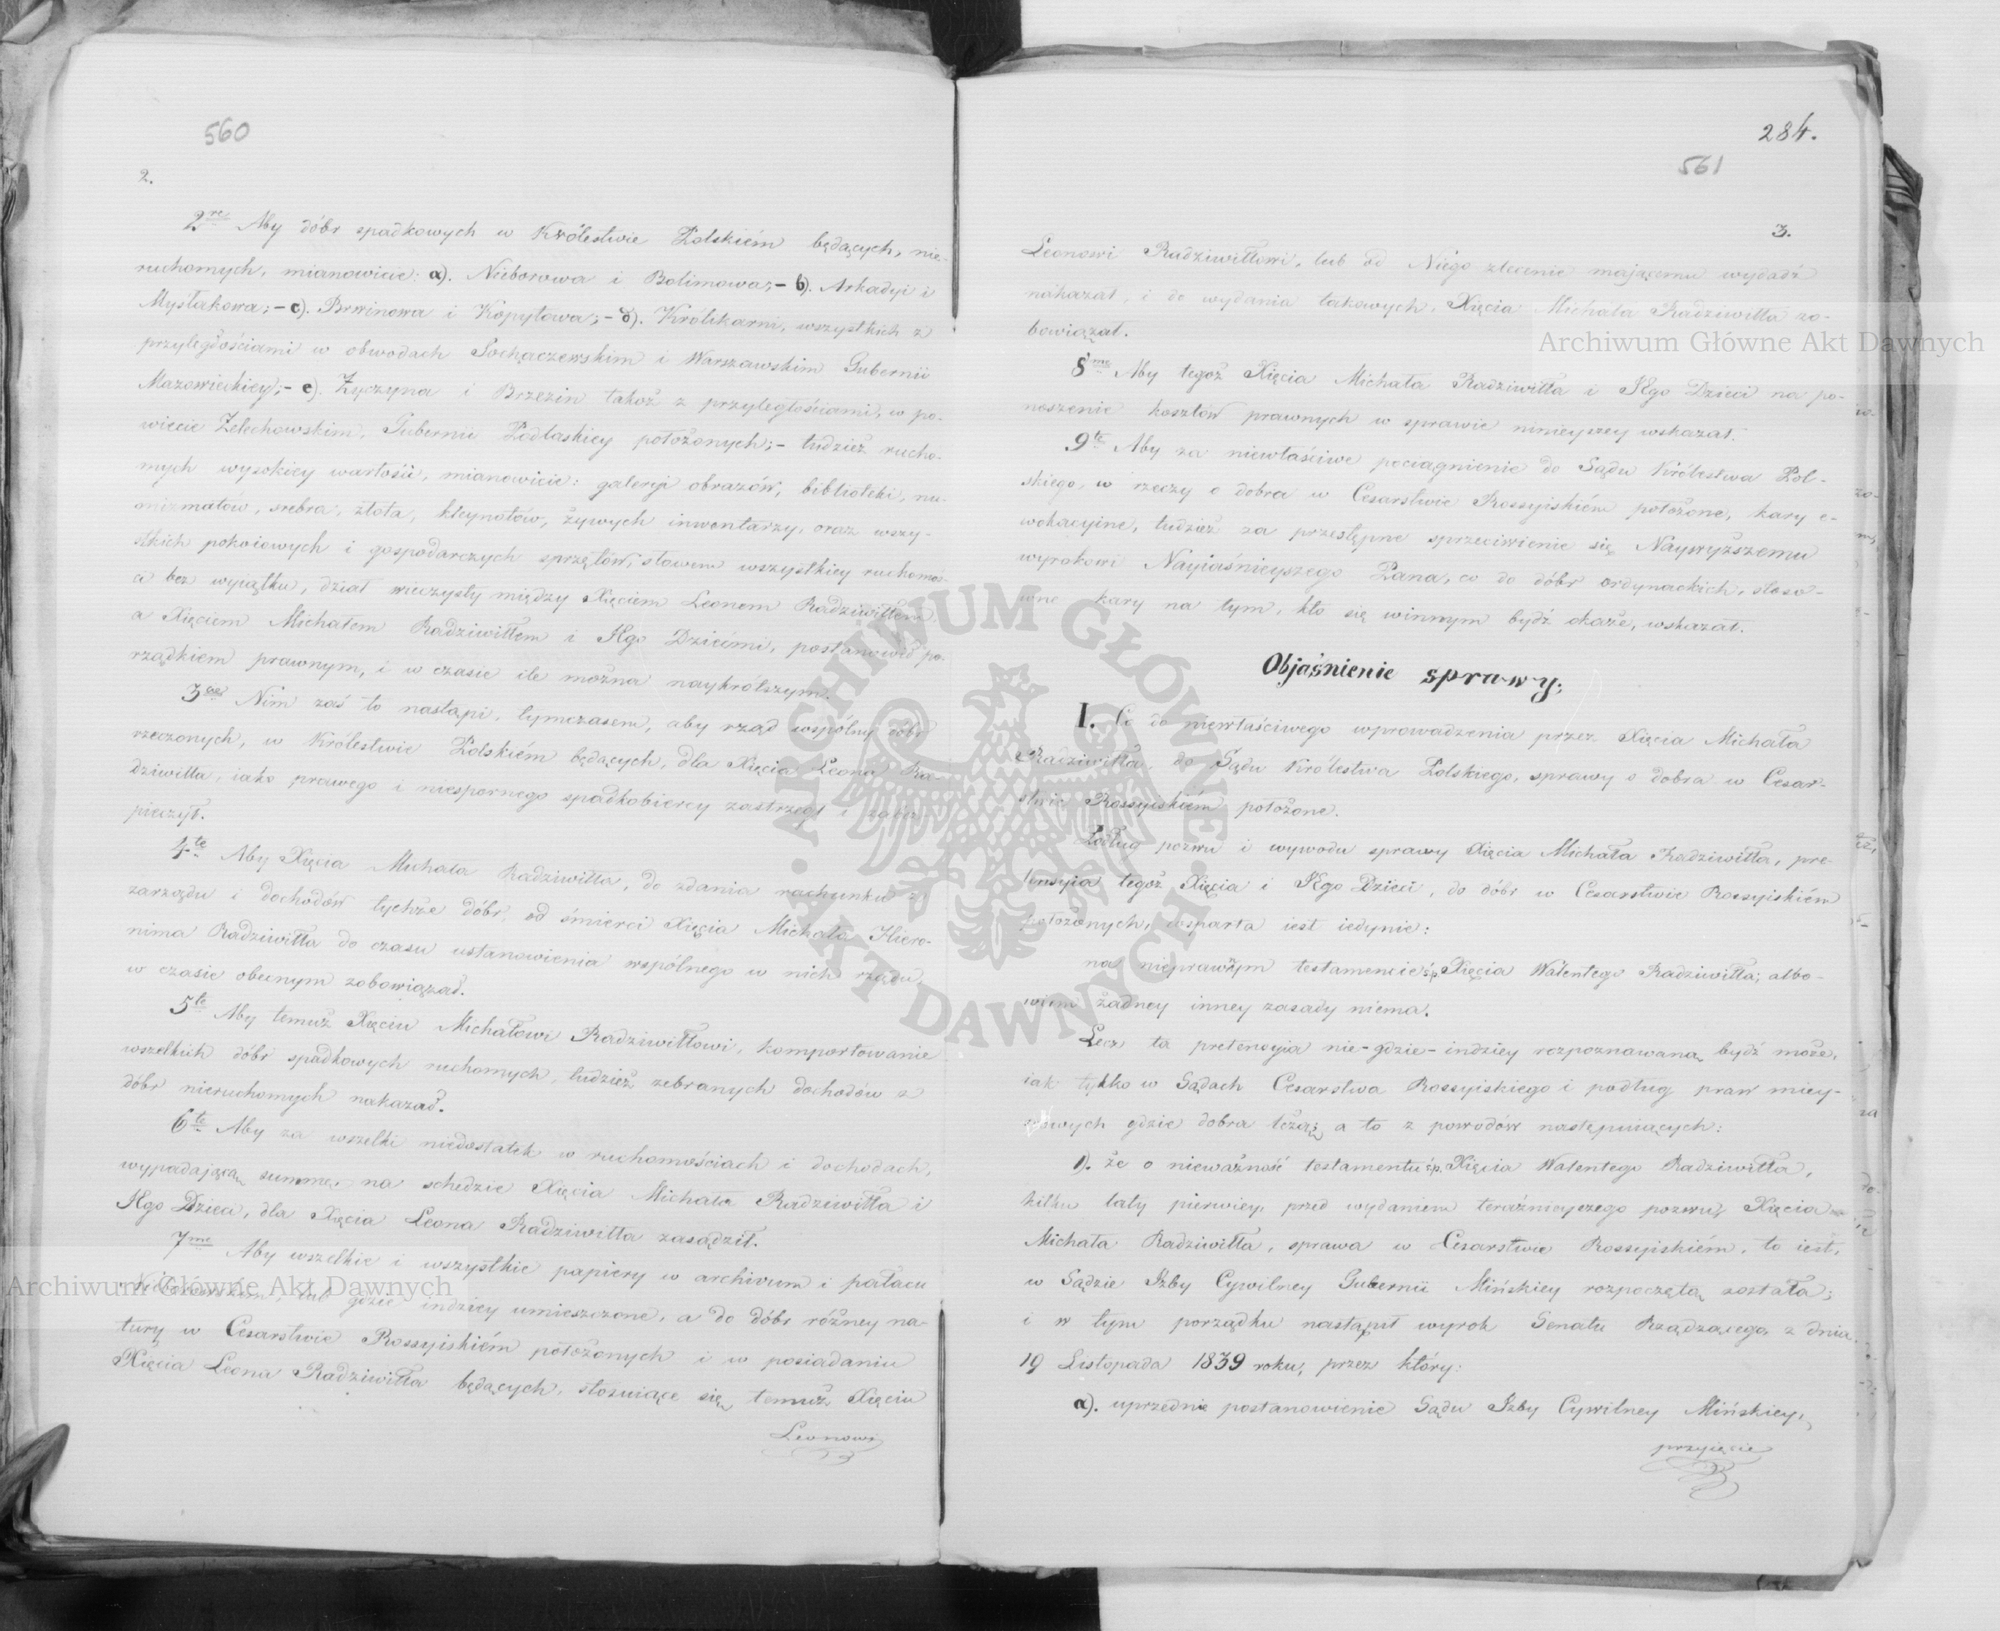 560
2.
2re Aby dóbr spadkowych w Królestwie Polskiém będących, nie-
ruchomych, mianowicie: a). Nieborowa i Bolimowa;- b). Arkadyi i
Mysłakowa;- c). Brwinowa i Kopytowa;- d). Królikarni, wszystkich z
przyległościami w obwodach Sochaczewskim i Warszawskim Gubernii
Mazowieckiey;- e). Życzyna i Brzezin takoż z przyległościami, w po-
wiecie Żelechowskim, Gubernii Podlaskiey położonych;- tudzież rucho-
mych wysokiey wartości, mianowicie: galeryi obrazów, biblioteki, nu-
mizmatów, srebra, złota, kleynotów, żywych inwentarzy, oraz wszy-
stkich pokoiowych i gospodarczych sprzętów, słowem wszystkiey ruchomoś-
ci bez wyiątku, dział wieczysty między Xięciem Leonem Radziwiłłem
a Xięciem Michałem Radziwiłłem i Jego Dziećmi, postanowił po-
rządkiem prawnym, i w czasie ile można naykrótszym.
3cie Nim zaś to nastąpi, tymczasem, aby rząd wspólny dóbr
rzeczonych, w Królestwie Polskiém będących, dla Xięcia Leona Ra-
dziwiłła, iako prawego i niespornego spadkobiercy zastrzegł i zabez-
pieczył.
4te Aby Xięcia Michała Radziwiłła, do zdania rachunku z
zarządu i dochodów tychże dóbr, od śmierci Xięcia Michała Hiero-
nima Radziwiłła do czasu ustanowienia wspólnego w nich rządu,
w czasie obecnym zobowiązał.
5te Aby temuż Xięciu Michałowi Radziwiłłowi, komportowanie
wszelkich dóbr spadkowych ruchomych, tudzież zebranych dochodów z
dóbr nieruchomych nakazał.
6te Aby za wszelki niedostatek w ruchomościach i dochodach,
wypadaiącą summę, na schedzie Xięcia Michała Radziwiłła i
Jego Dzieci, dla Xięcia Leona Radziwiłła zasądził.
7me Aby wszelkie i wszystkie papiery w archiwum i pałacu
Nieborowskim, lub gdzie indziey umieszczone, a do dóbr różney na-
tury w Cesarstwie Rossyiskiém położonych i w posiadaniu
Xięcia Leona Radziwiłła będących, stosuiące się, temuż Xięciu
Leonowi
284.
561
3.
Leonowi Radziwiłłowi, lub od Niego zlecenie maiącemu wydadź
nakazał, i do wydania takowych, Xięcia Michała Radziwiłła zo-
bowiązał.
8me Aby tegoż Xięcia Michała Radziwiłła i Jego Dzieci na po-
noszenie kosztów prawnych w sprawie ninieyszey wskazał.
9te Aby za niewłaściwe pociągnienie do Sądu Królestwa Pol-
skiego, w rzeczy o dobra w Cesarstwie Rossyiskiém położone, kary e-
wokacyine, tudzież za przestępne sprzeciwienie się Naywyższemu
wyrokowi Nayiaśnieyszego Pana, co do dóbr ordynackich, stoso-
wne kary na tym, kto się winnym bydź okaże, wskazał.
Objaśnienie sprawy;
I. Co do niewłaściwego wprowadzenia przez Xięcia Michała
Radziwiłła, do Sądu Królestwa Polskiego, sprawy o dobra w Cesar-
stwie Rossyiskiém położone.
Podług pozwu i wywodu sprawy Xięcia Michała Radziwiłła, pre-
tensyia tegoż Xięcia i Jego Dzieci, do dóbr w Cesarstwie Rossyiskiém
położonych, wsparta iest iedynie:
na nieprawym testamencie śp. Xięcia Walentego Radziwiłła; albo-
wiem żadney inney zasady niema.
Lecz ta pretensyia nie-gdzie-indziey rozpoznawaną bydź może,
iak tylko w Sądach Cesarstwa Rossyiskiego i podług praw miey-
scowych gdzie dobra leżą, a to z powodów następuiących:
1). że o nieważność testamentu śp. Xięcia Walentego Radziwiłła,
kilku laty pierwiey, przed wydaniem teraźnieyszego pozwu, Xięcia
Michała Radziwiłła, sprawa w Cesarstwie Rossyiskiém, to iest,
w Sądzie Izby Cywilney Gubernii Mińskiey rozpoczętą została;
i w tym porządku nastąpił wyrok Senatu Rządzącego, z dnia
19 Listopada 1839 roku, przez który:
a). uprzednie postanowienie Sądu Izby Cywilney Mińskiey,
przyięcie
Archiwum Główne Akt Dawnych
Archiwum Główne Akt Dawnych
ARCHIWUM GŁÓWNE
AKT DAWNYCH